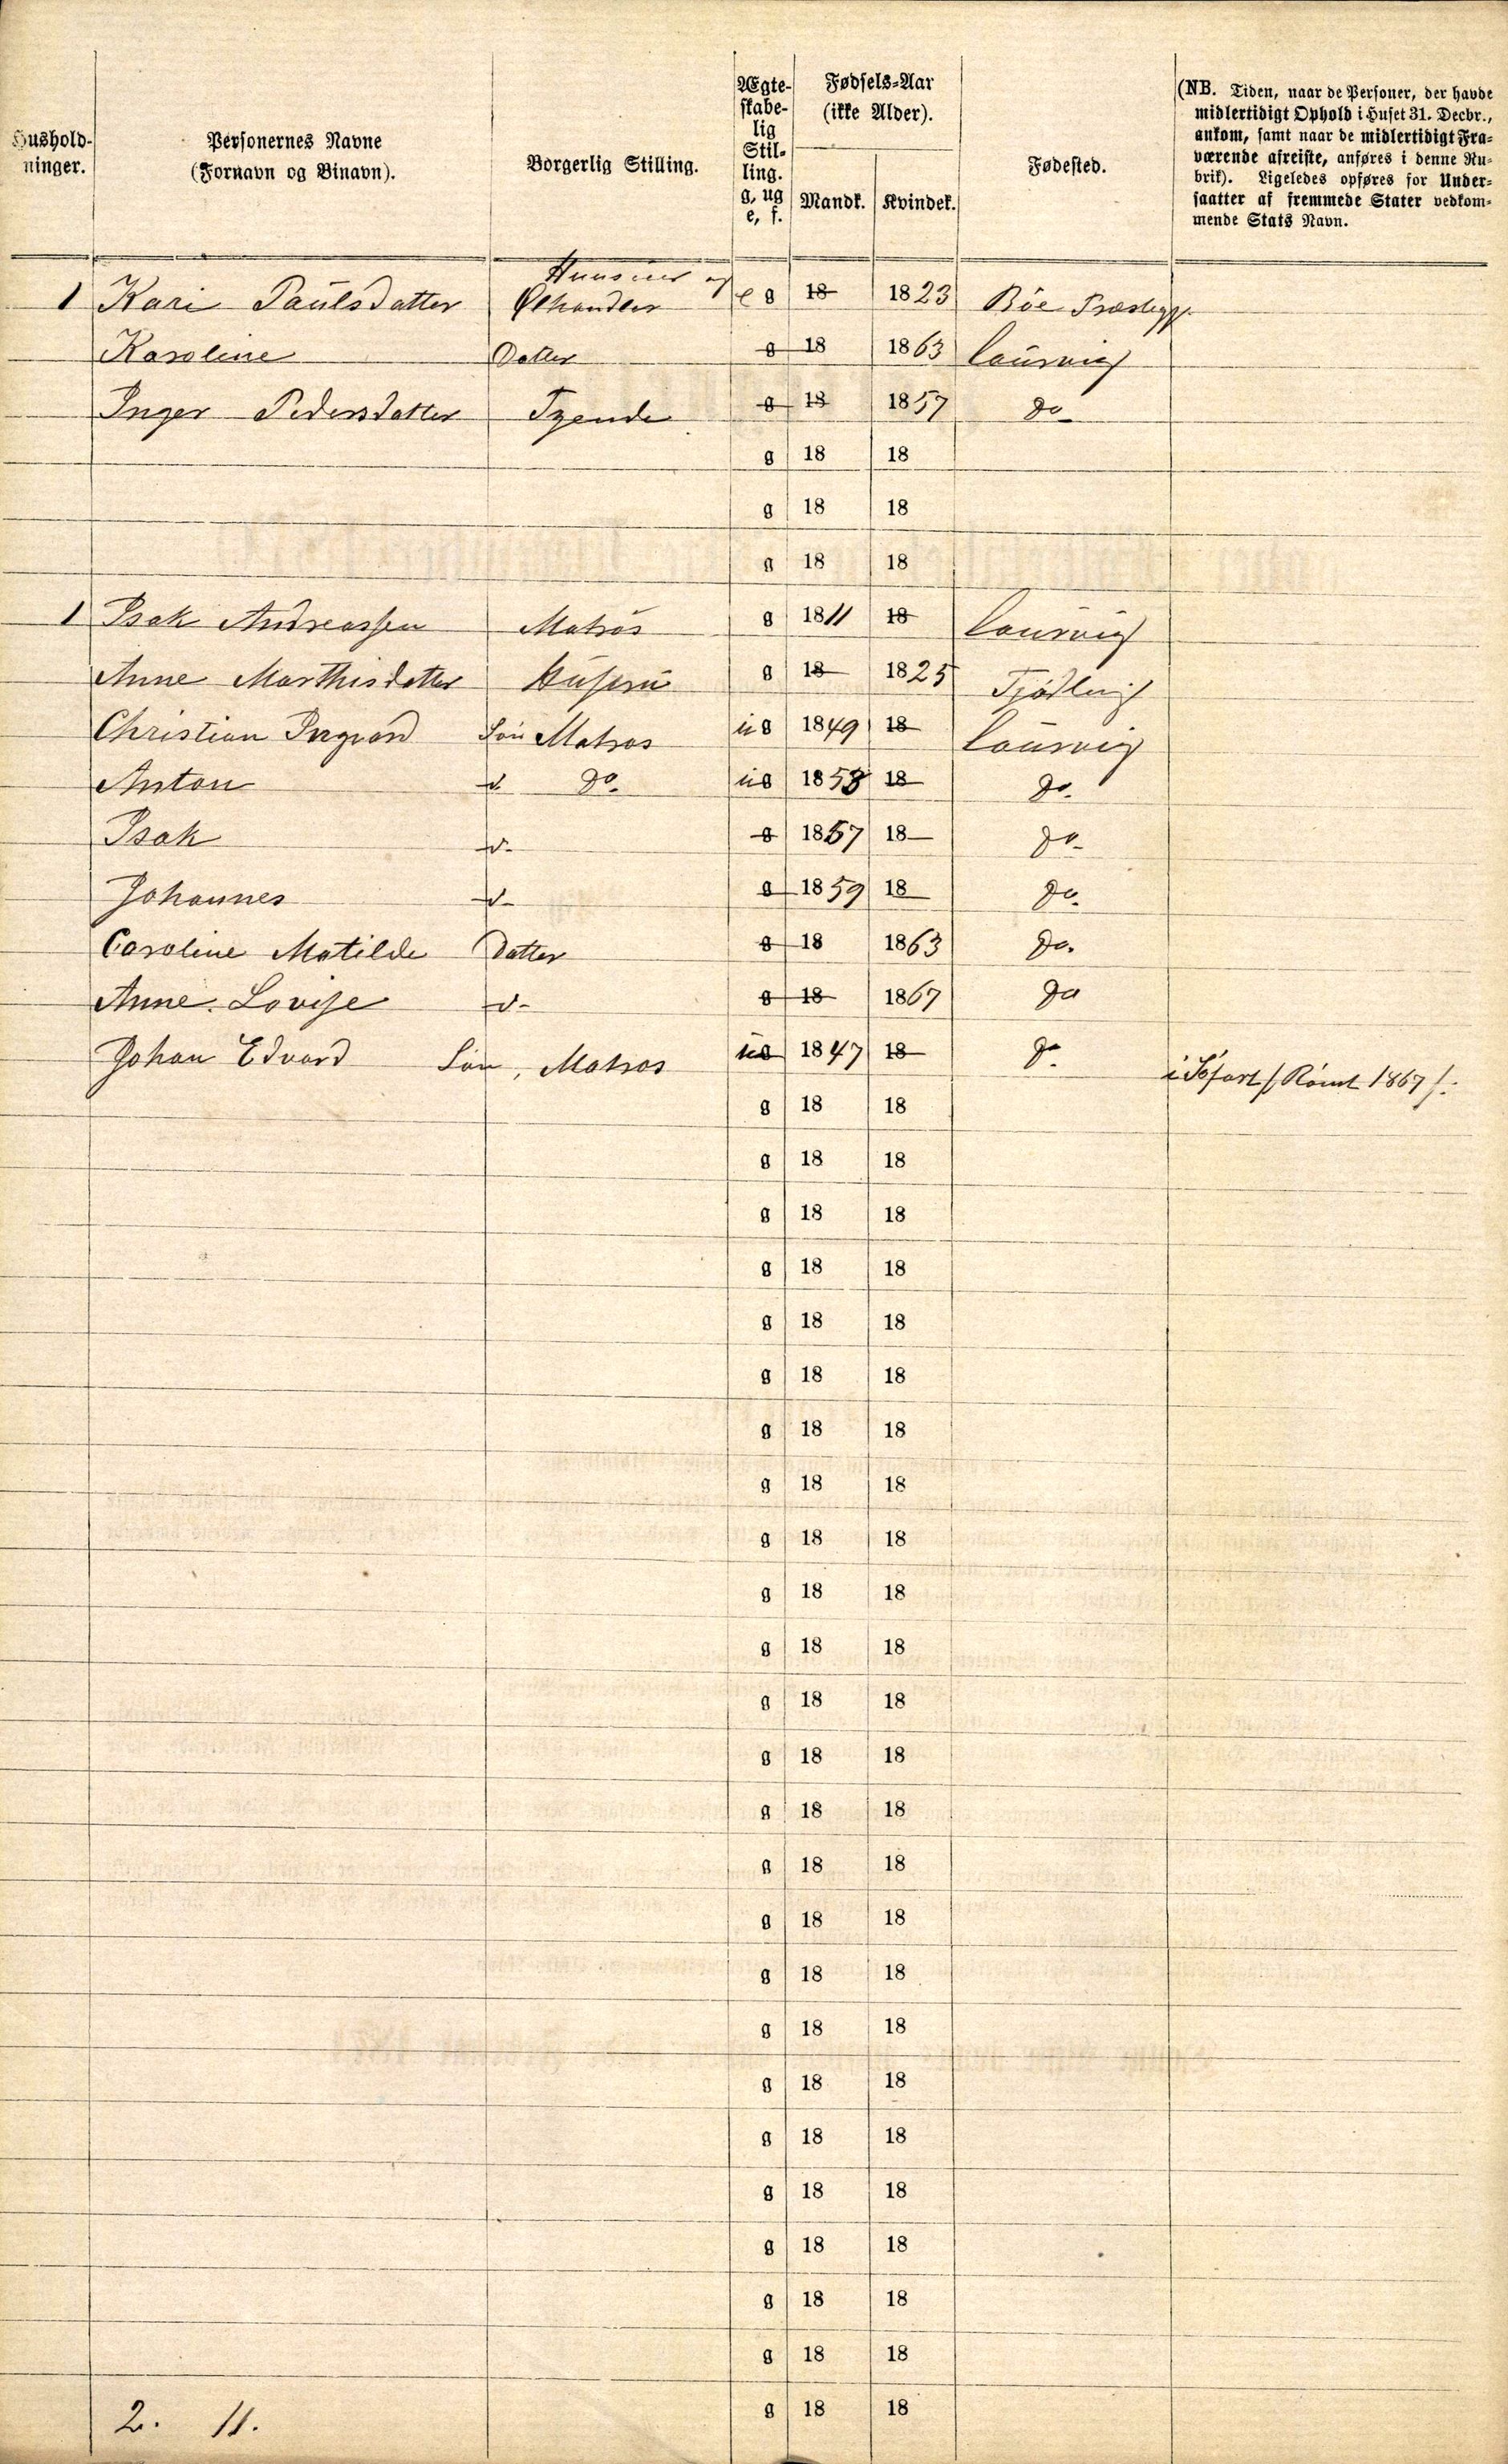 Hushold-
ninger.
Personernes Navne
(Fornavn og Binavn).
Borgerlig Stilling.
Ægte-
skabe-
lig
Stil-
ling.
g, ug
e, f.
Fødsels-Aar
(ikke Alder).
Mandk. Kvindek.
Fødested.
(NB. Tiden, naar de Personer, der havde
midlertidigt Ophold i Huset 31. Decbr.,
ankom, samt naar de midlertidigt Fra-
værende afreiste, anføres i denne Ru-
brik). Ligeledes opføres for Under-
saatter af fremmede Stater vedkom-
mende Stats Navn.
og
1 Kari Paulsdatter Ølhandler e g 18 1823 Böe Præstegj.
Karoline Datter g 18 1863 Laurvig
Inger Pedersdatter Tyende g 18 1857 Do
g 18 18
g 18 18
g 18 18
1 Isak Andreassen Matros g 1811 18 Laurvig
Anne Marthisdatter Husfru g 18 1825 Tjødling
Christian Ingvard Søn Matros ug 1849 18 Laurvig
Anton d Do. ug 1853 18 Do.
Isak d. g 1857 18 Do.
Johannes d. g 1859 18 Do.
Caroline Matilde Datter g 18 1863 Do.
Anne Lovise d. g 18 1867 Do
Johan Edvard Søn, Matros ug 1847 18 Do. i Söfart /: Römt 1867 :/
g 18 18
g 18 18
g 18 18
g 18 18
g 18 18
g 18 18
g 18 18
g 18 18
g 18 18
g 18 18
g 18 18
g 18 18
g 18 18
g 18 18
g 18 18
g 18 18
g 18 18
g 18 18
g 18 18
g 18 18
g 18 18
g 18 18
g 18 18
g 18 18
2. 11. g 18 18